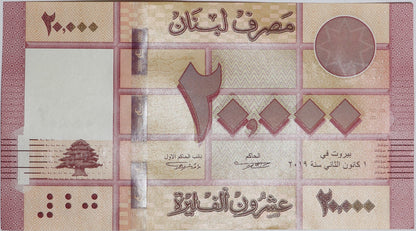 ٢٠,٠٠٠
مصرف لبنان
٢٠,٠٠٠
بيروت في
١ كانون الثاني سنة ٢٠١٩
الحاكم
نائب الحاكم الأول
عشرون ألف ليرة
٢٠,٠٠٠